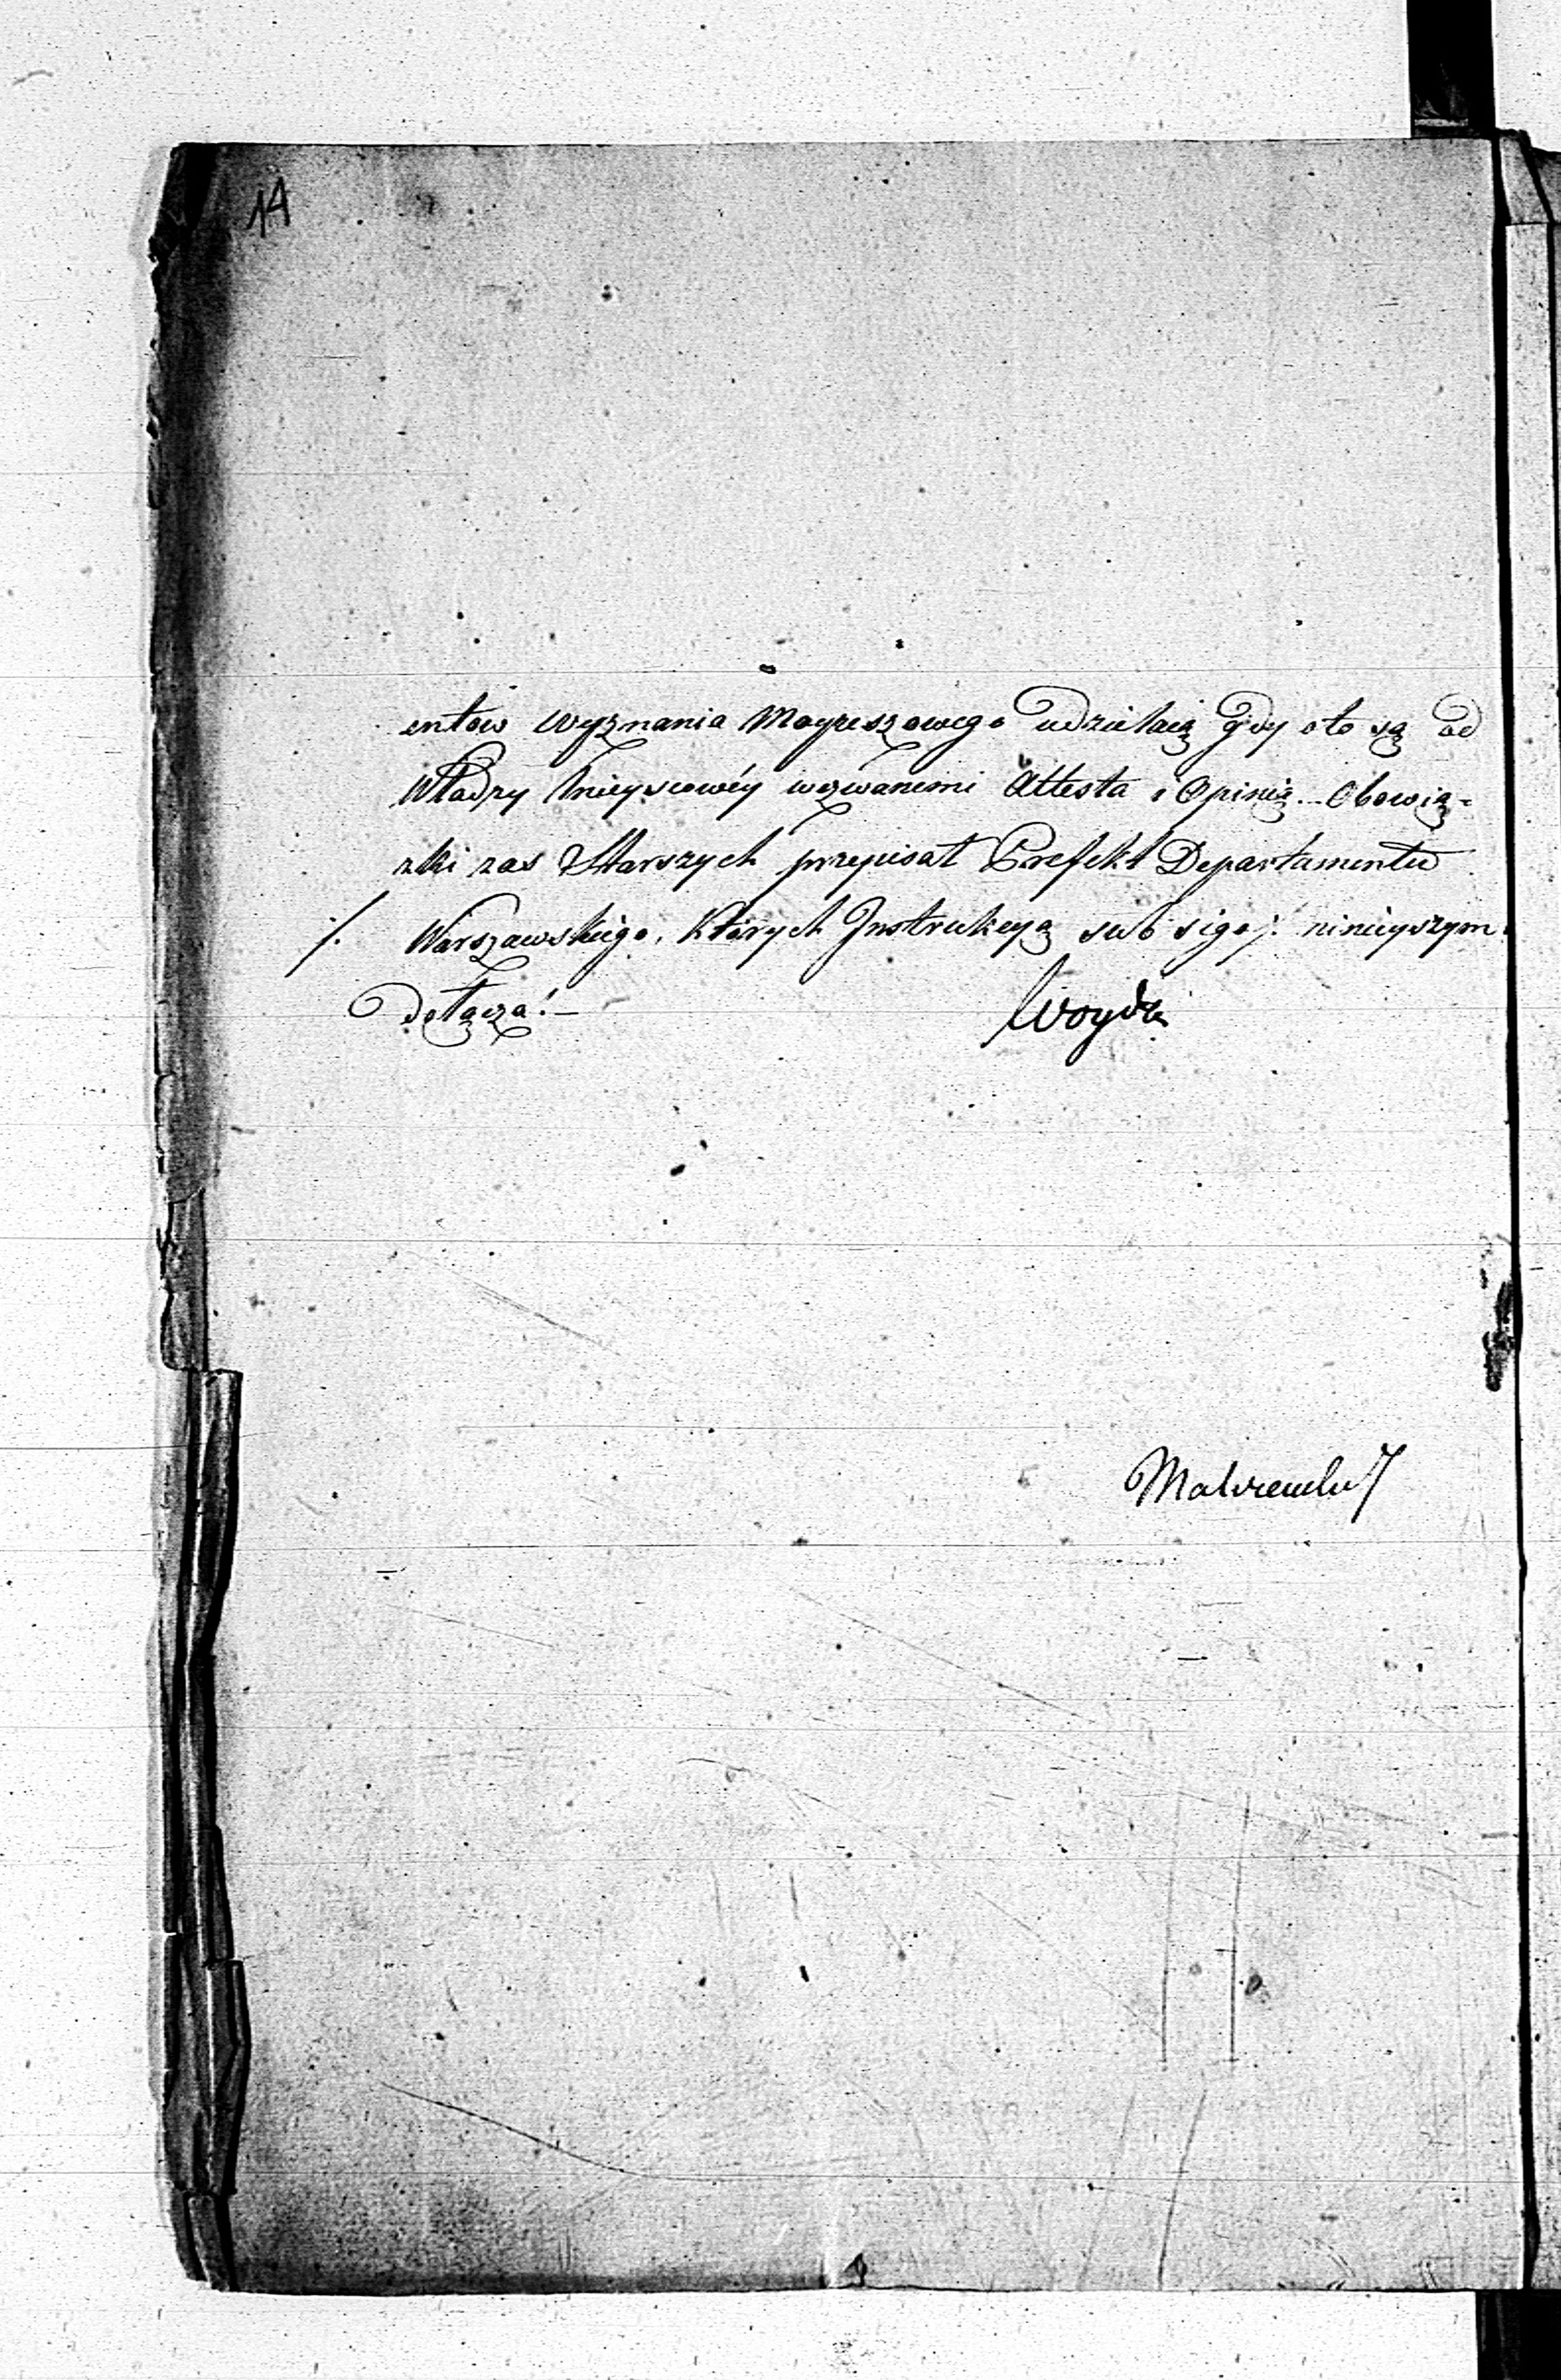 14
entów wyznania Moyżeszowego udzielaią gdy oto są od
Władzy Mieyscowéy wezwanemi Attesta i Opinią. Obowią-
zki zas Starszych przepisał Prefekt Departamentu
/. Warszawskiego, których Instrukcyą sub sigo /. ninieyszym
dołącza! –
Woyda